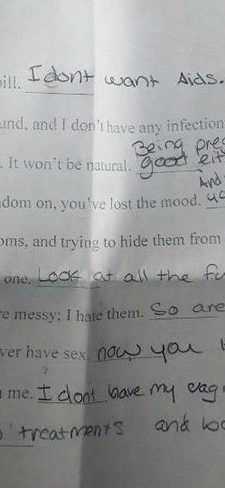 ill. I dont want Aids.
und, and I don't have any infection
Being pre
. It won't be natural. good eit
And
dom on, you've lost the mood.
oms, and trying to hide them from
one. Look at all the fu
e messy; I hate them. So are
ver have sex. now you
me. I dont leave my vag
treatments and